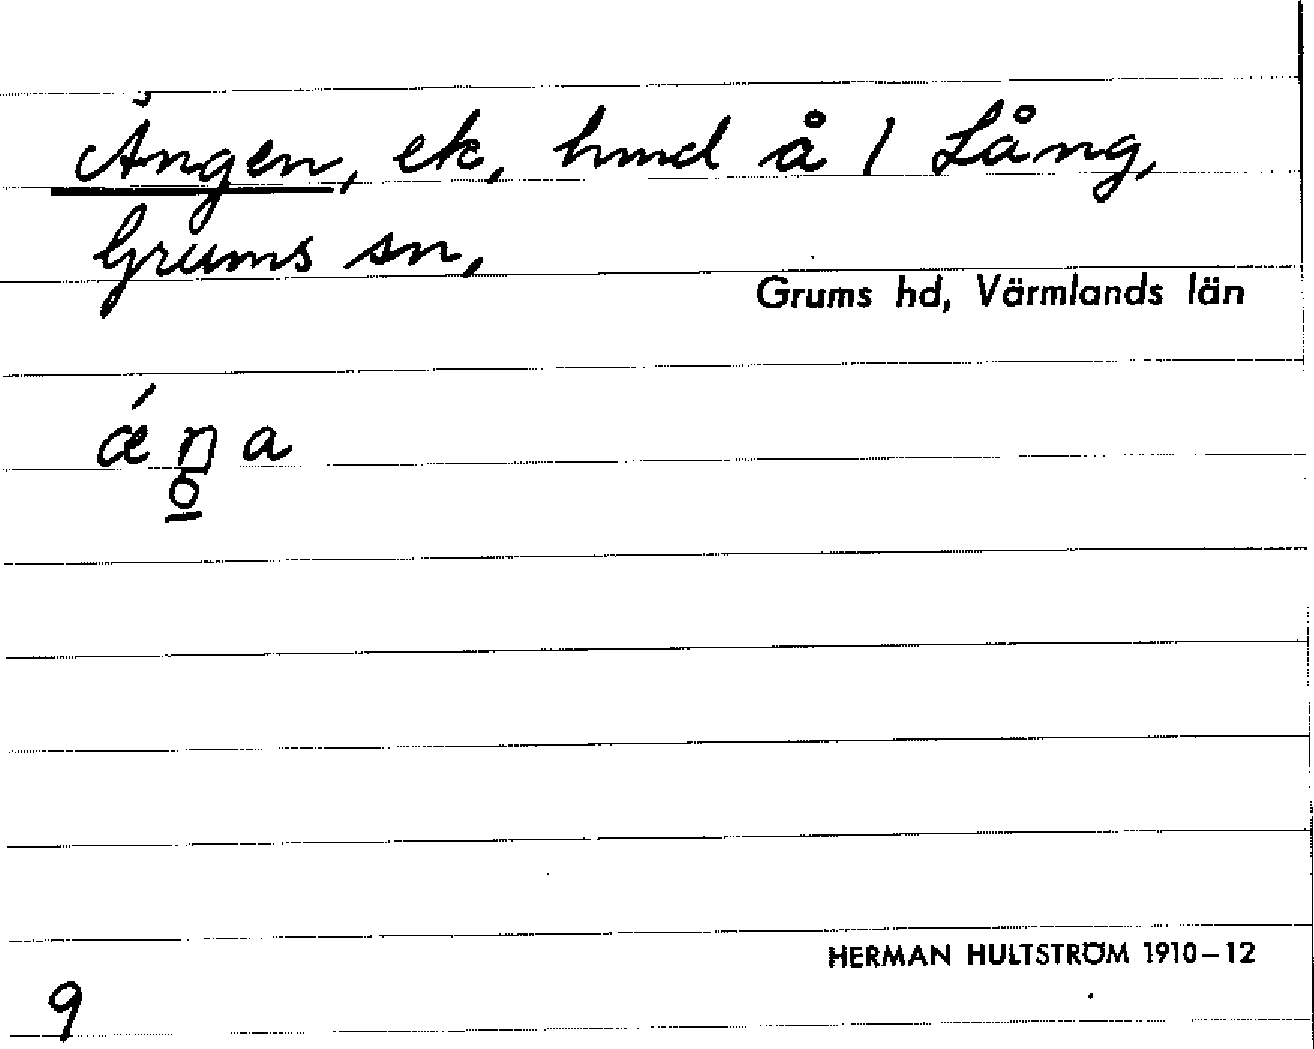 Ängen, ek, hmd å 1 Lång,
Grums sn,
Grums hd, Värmlands län
ǽ ŋ̥ a
HERMAN HULTSTRÖM 1910–12
9